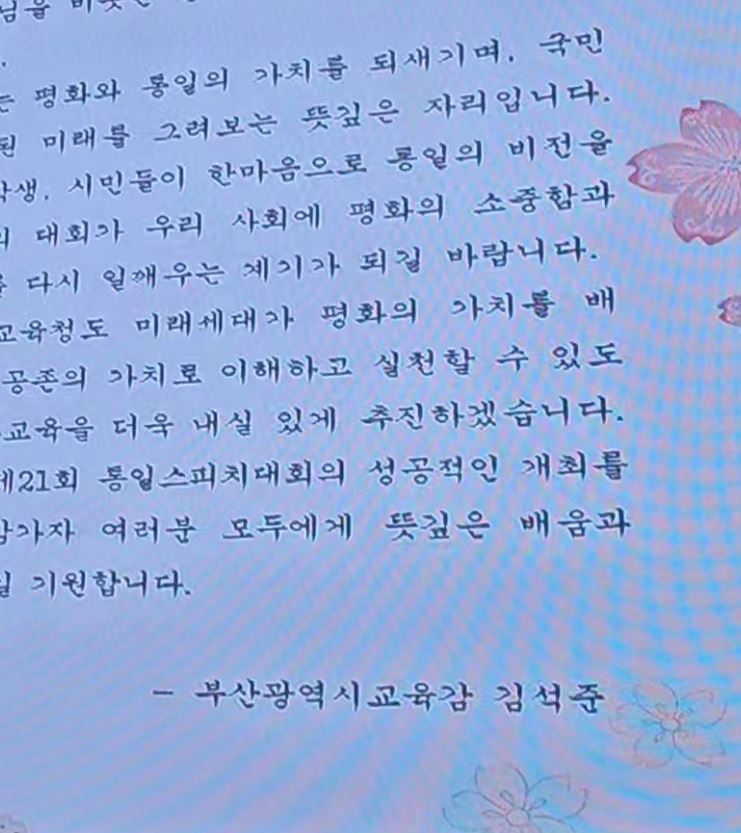 는 평화와 통일의 가치를 되새기며, 국민
된 미래를 그려보는 뜻깊은 자리입니다.
학생, 시민들이 한마음으로 통일의 비전을
대회가 우리 사회에 평화의 소중함과
다시 일깨우는 계기가 되길 바랍니다.
교육청도 미래세대가 평화의 가치를 배
공존의 가치로 이해하고 실천할 수 있도
교육을 더욱 내실 있게 추진하겠습니다.
제21회 통일스피치대회의 성공적인 개최를
참가자 여러분 모두에게 뜻깊은 배움과
기원합니다.
- 부산광역시교육감 김석준